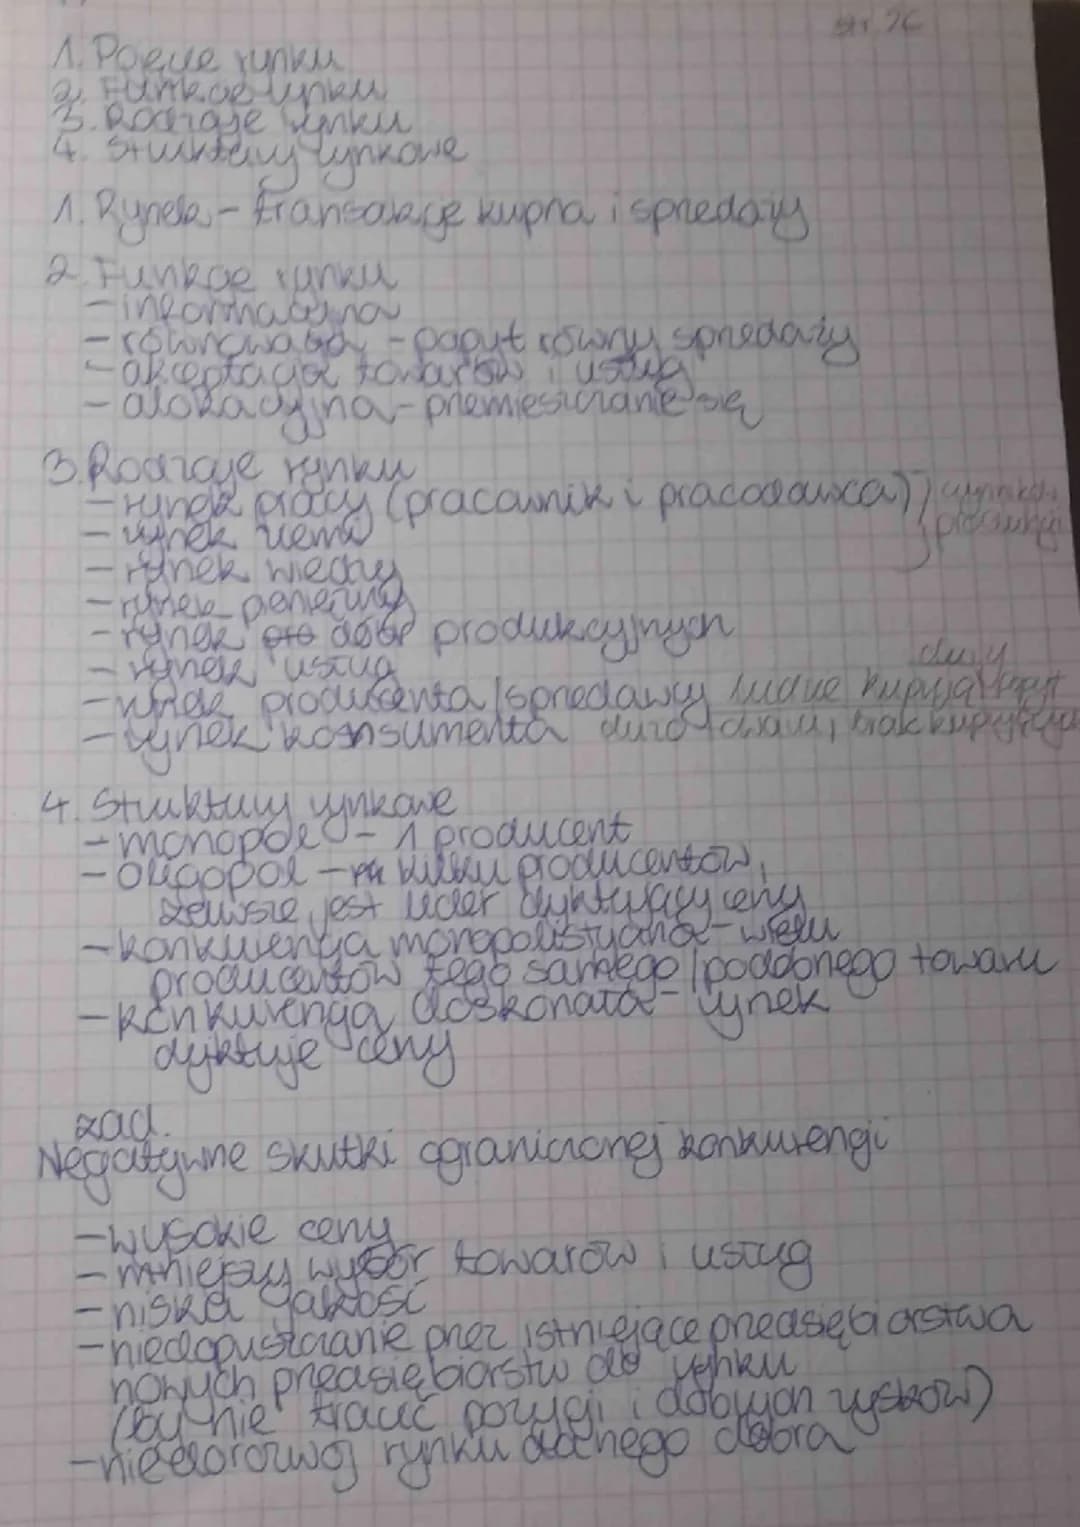 str. 76
1. Pojęcie rynku
2. Funkcje rynku
3. Rodzaje rynku
4. Struktury rynkowe
1. Rynek - transakcje kupna i sprzedaży
2. Funkcje rynku
- informacyjna
- równowaga - popyt równy sprzedaży
- akceptacja towarów i usług
- alokacyjna - przemieszczanie się
3. Rodzaje rynku
- rynek pracy (pracownik i pracodawca) } czynniki
- rynek ziemi } produkcji
- rynek wiedzy
- rynek pieniężny
- rynek dóbr produkcyjnych
- rynek usług
duży
- rynek producenta / sprzedawcy ludzie kupują popyt
- rynek konsumenta dużo towaru, brak kupujących
4. Struktury rynkowe
- monopol - 1 producent
- oligopol - kilku producentów,
zawsze jest lider dyktujący ceny
- konkurencja monopolistyczna - wielu
producentów tego samego / podobnego towaru
- konkurencja doskonała - rynek
dyktuje ceny
zad.
Negatywne skutki ograniczonej konkurencji
- wysokie ceny
- mniejszy wybór towarów i usług
- niska jakość
- niedopuszczanie przez istniejące przedsiębiorstwa
nowych przedsiębiorstw do rynku
(by nie tracić pozycji i dobrych zysków)
- niedorozwój rynku danego dobra